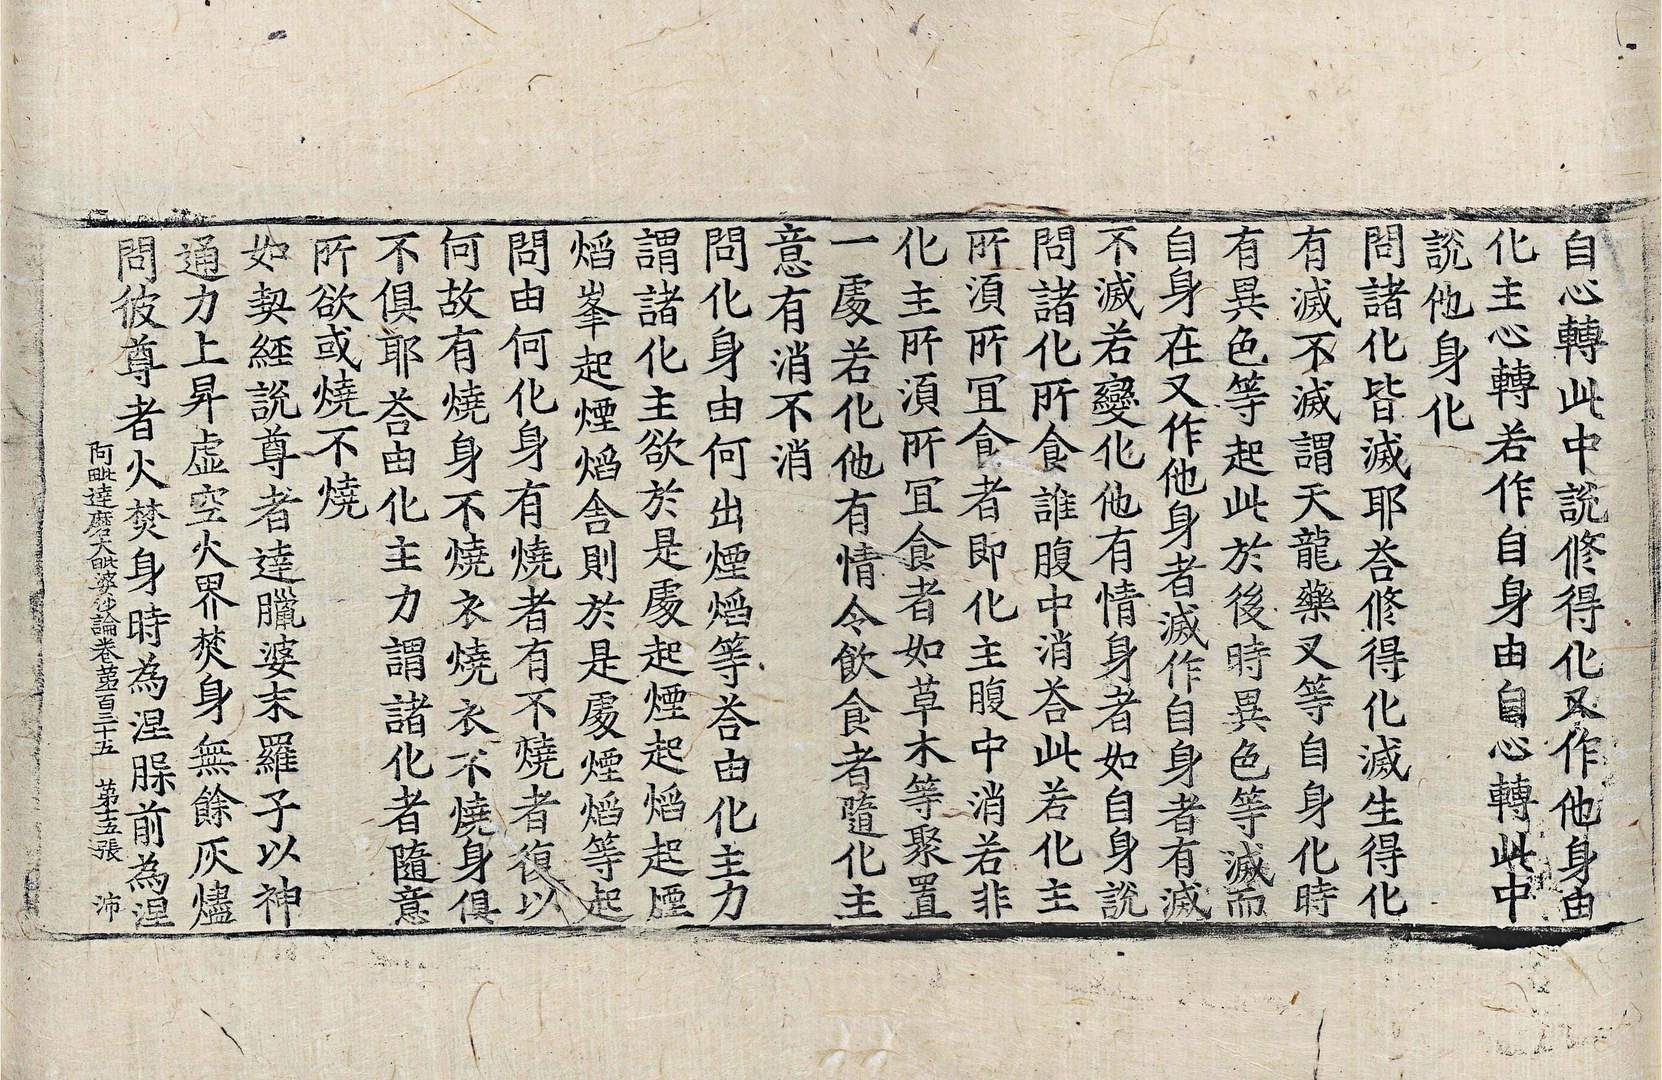 自心轉此中說修得化又作他身由
化主心轉若作自身由自心轉此中
說他身化
問諸化皆滅耶荅修得化滅生得化
有滅不滅謂天龍藥叉等自身化時
有異色等起此於後時異色等滅而
自身在又作他身者滅作自身者有滅
不滅若變化他有情身者如自身說
問諸化所食誰腹中消荅此若化主
所湏所冝食者即化主腹中消若非
化主所湏所冝食者如草木等聚置
一處若化他有情令飲食者隨化主
意有消不消
問化身由何出煙熖等荅由化主力
謂諸化主欲於是處起煙起熖起煙
熖峯起煙熖舎則於是處煙熖等起
問由何化身有燒者有不燒者復以
何故有燒身不燒衣燒衣不燒身俱
不俱耶荅由化主力謂諸化者隨意
所欲或燒不燒
如契經說尊者達臘婆末羅子以神
通力上昇虛空火界焚身無餘灰燼
問彼尊者火焚身時為涅槃前為涅
阿毗達磨大毗婆沙論卷第一百三十五　第十五張　沛